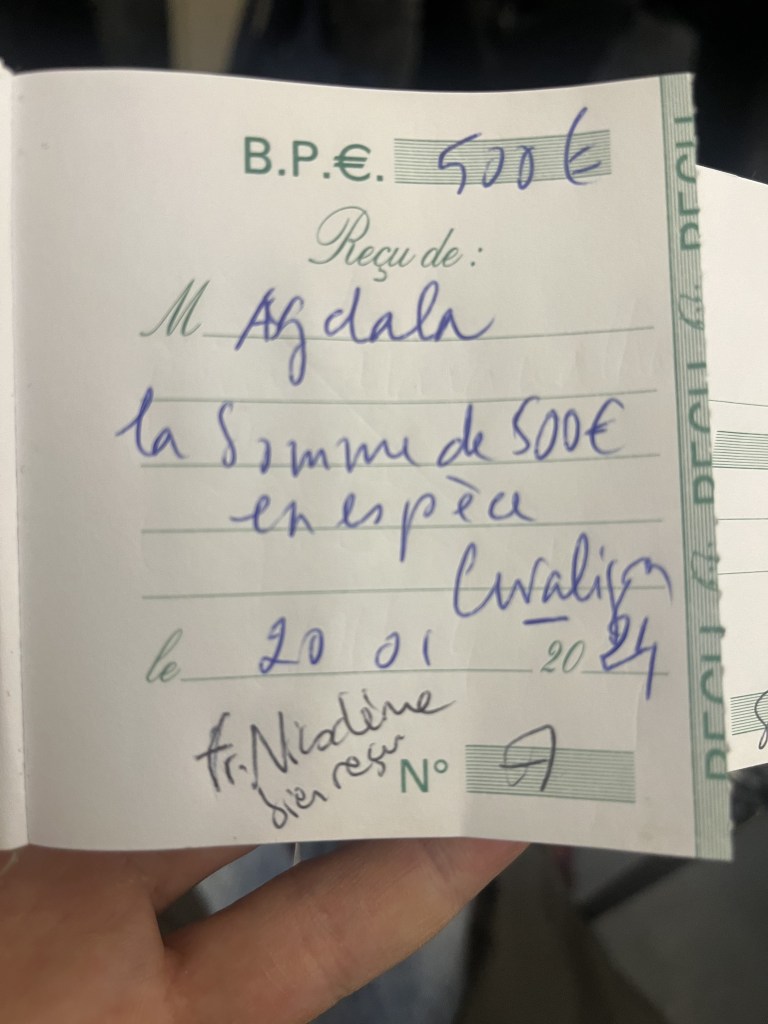 B.P.€. 500 €
Reçu de :
M Agdala
la Somme de 500€
en espèce
le 20 01 2024
fr. Nicodème
bien reçu
N° 7
REÇU
REÇU
REÇU